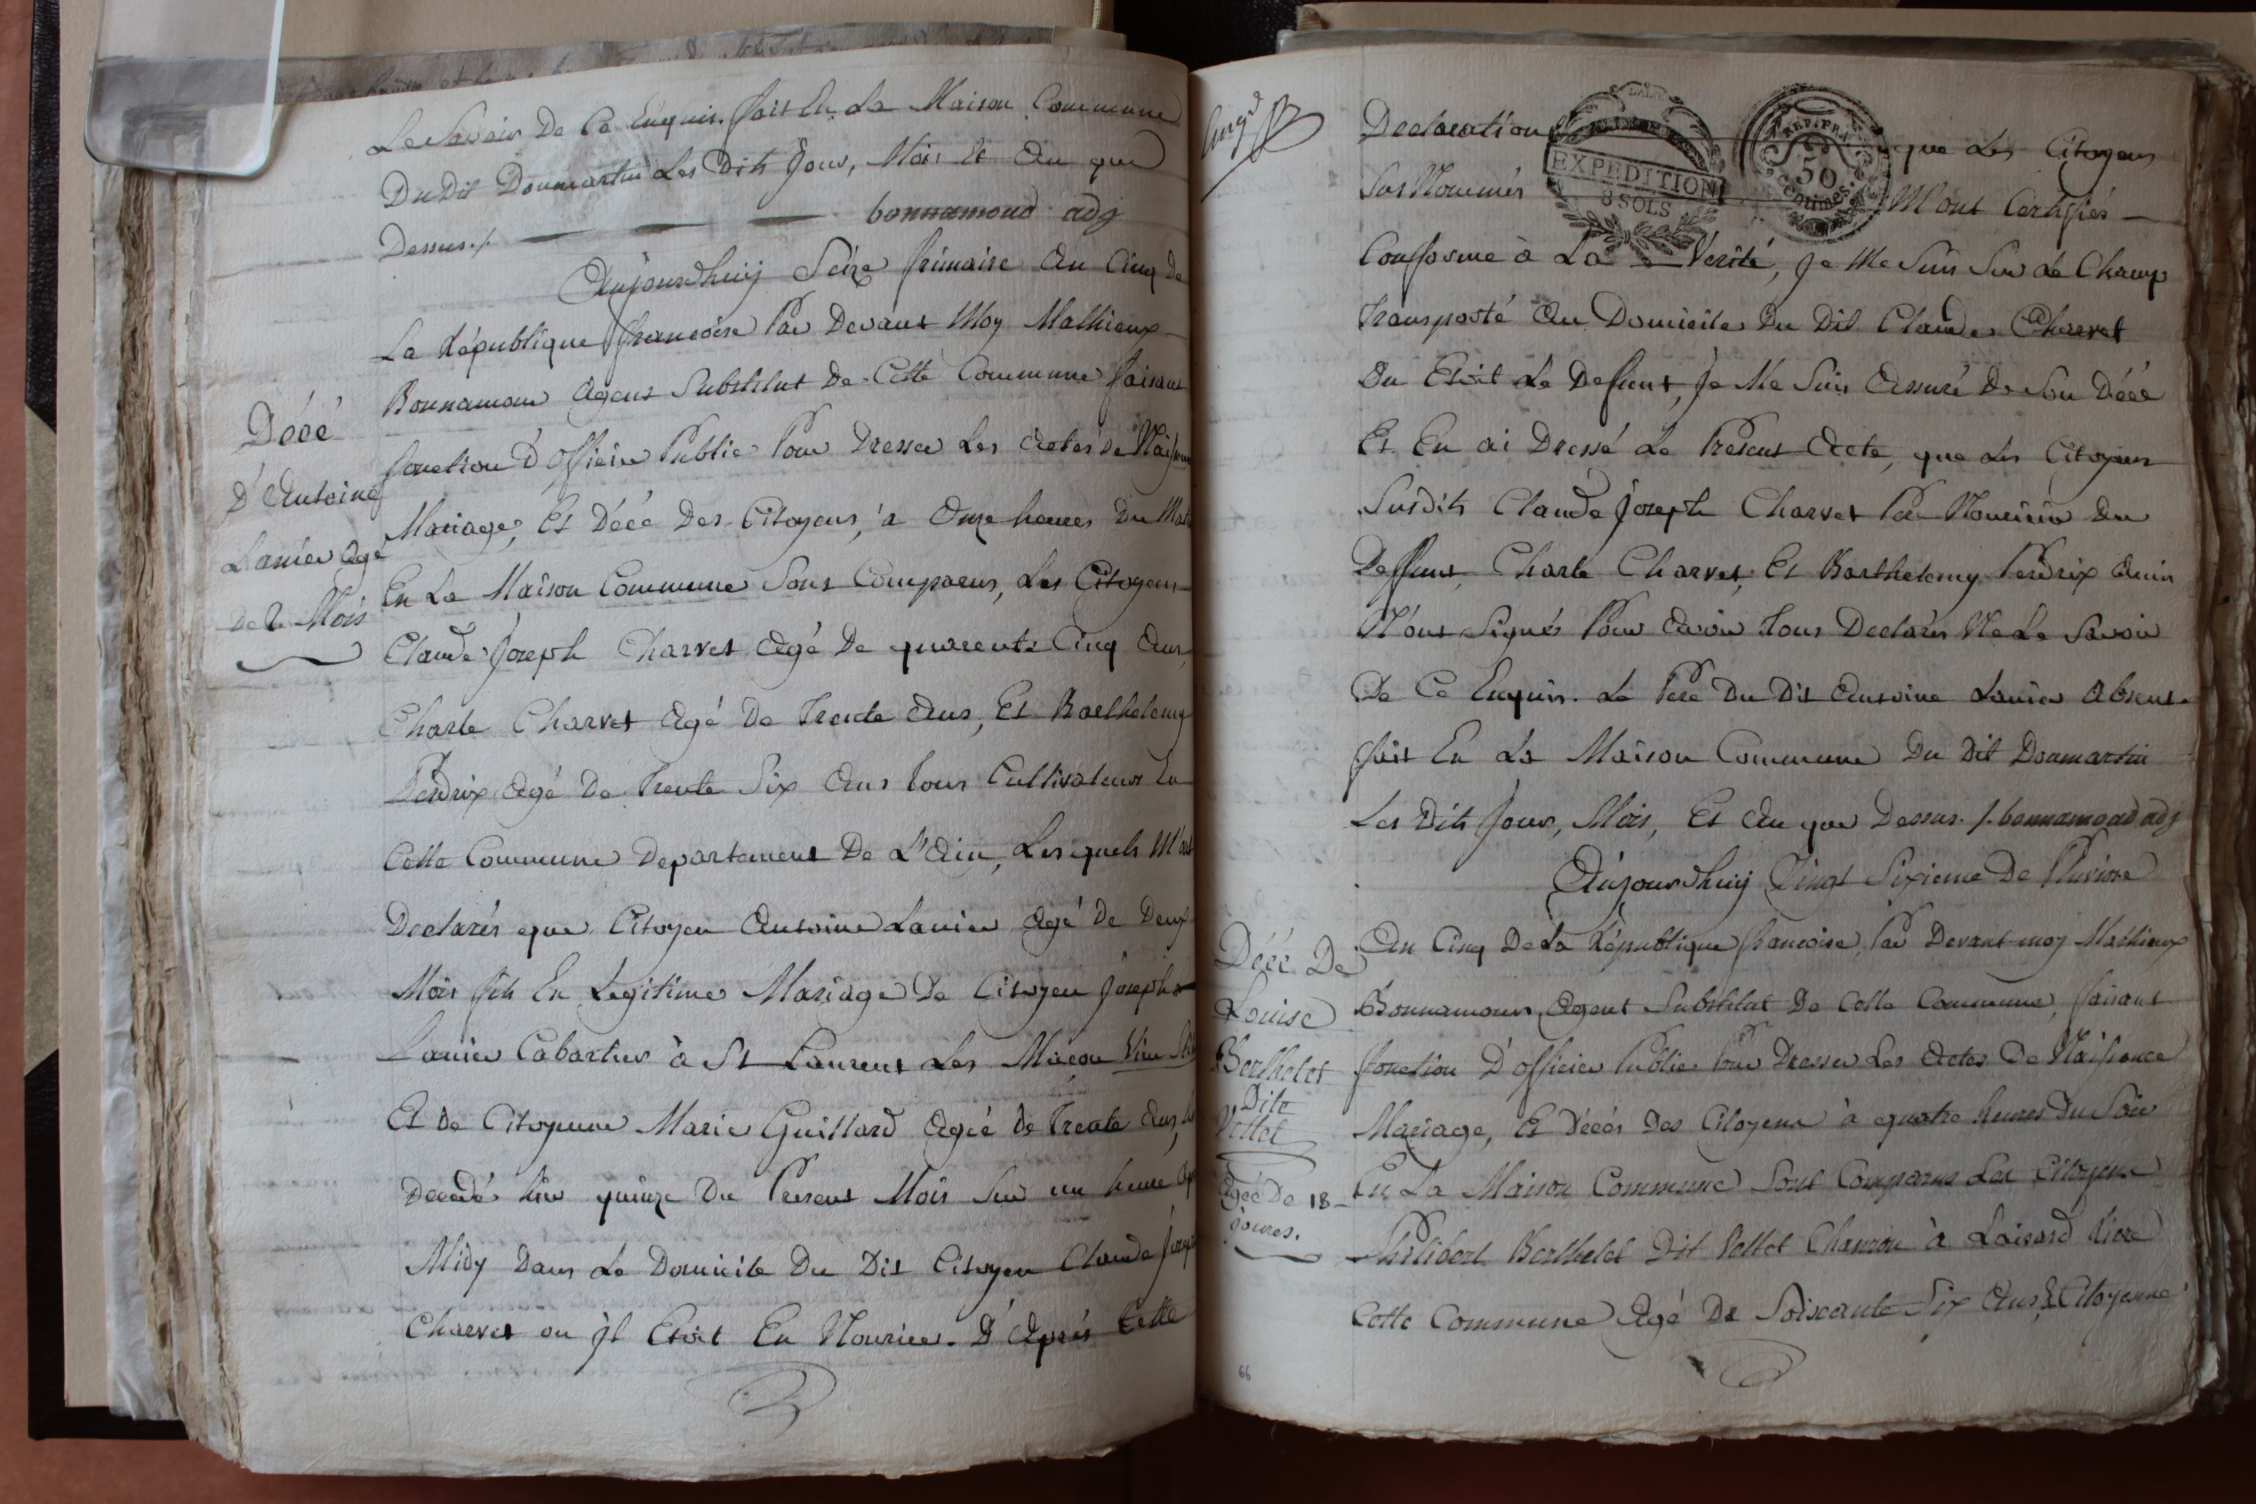 Le Savoir De Ce Enquis. fait En La Maison Commune
Du Dit Dommartin Les Dits Jour, Mois et An que
Dessus ./. bonnamoud adj
Aujourdhuij Seize frimaire An Cinq De
La République francoise Par Devant Moy Mathieux
Bonnamour Agent Substitut De Cette Commune faisant
fonction D'officier Public Pour Dresser Les Actes De
Mariage, Et Décé Des Citoyens, a Onze heures Du
En La Maison Commune Sont Comparus, Les Citoyens
Claude Joseph Charvet Agé De quarente Cinq Ans,
Charle Charvet Agé De Trente Ans, Et Barthelemy
Perdrix Agé De Trente Six Ans tous Cultivateurs En
Cette Commune Departement De L'Ain, Lesquels M'ont
Declarés que Citoyen Antoine Lanier Agé De Deux
Mois fils En Legitime Mariage De Citoyen Joseph
Lanier Cabartier à St Laurent Les Macon
Et De Citoyenne Marie Guillard Agée De Trente Ans,
Decedé hier quinze Du Present Mois Sur un heure
Midy Dans Le Domicile Du Dit Citoyen Claude
Charvet ou Jl Etoit En Nourice. D'Après Cette
Décé
D'Antoine
Lanier Agé
De 2 Mois
Declaration que Les Citoyens
EXPEDITION
8 SOLS
REP. FRA
50
Centimes
SusNommés M'ont Certifiés
Conforme à La Verité, Je Me Suis Sur Le Champ
Transporté Au Domicile Du Dit Claude Charvet
Ou Etoit Le Defunt, Je Me Suis Assuré De Son Décé
Et En ai Dressé Le Present Acte, que Les Citoyens
Susdits Claude Joseph Charvet Pere Nouricier Du
Deffunt, Charle Charvet, Et Barthelemy Perdrix Amis
N'ont Signés Pour Avoir Tous Declarés Ne Le Savoir
De Ce Enquis. Le Pere Du Dit Antoine Lanier Absent.
fait En La Maison Commune Du Dit Dommartin
Les Dits Jour, Mois, Et An que Dessus. /. bonnamoud adj
Aujourdhuij Vingt Sixieme De Pluviose
An Cinq De La République francoise, Par Devant moy Mathieux
Bonnamour Agent Substitut De Cette Commune, faisant
fonction D'officier Public Pour Dresser Les Actes De Naissance
Mariage, Et Décés Des Citoyens à quatre heures Du Soir
En La Maison Commune Sont Comparus Les Citoyens
Philibert Berthelet Dit Vottet Charron à Loisard Riere
Cette Commune Agé De Soiscante Six Ans, & Citoyenne
Décé De
Louise
Berthelet
Dite
Vottet
Agée De 18
joures.
66